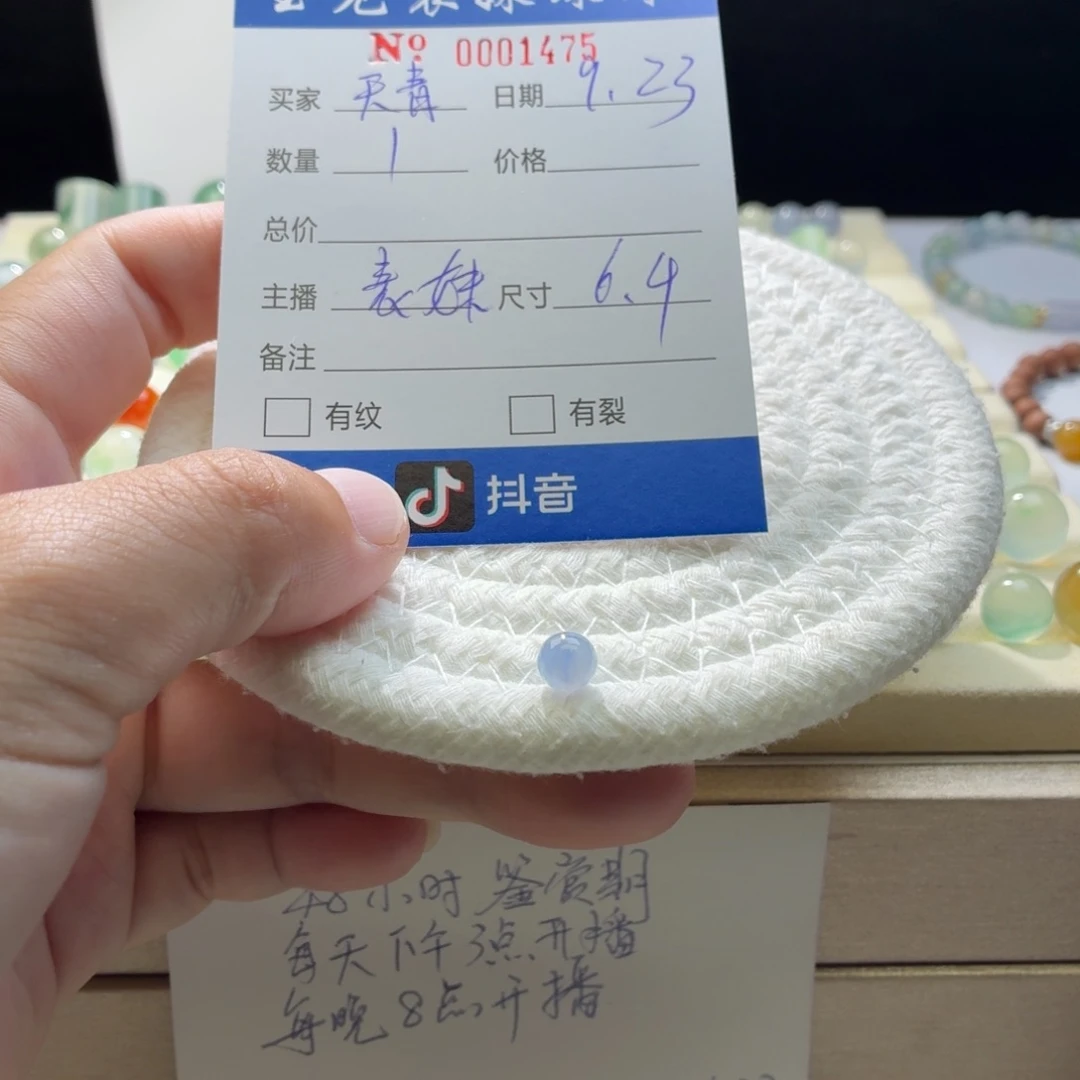 No 0001475
买家 天青 日期 9.23
数量 1 价格
总价
主播 表妹 尺寸 6.4
备注
有纹 有裂
抖音
48小时 鉴赏期
每天下午3点开播
每晚8点开播